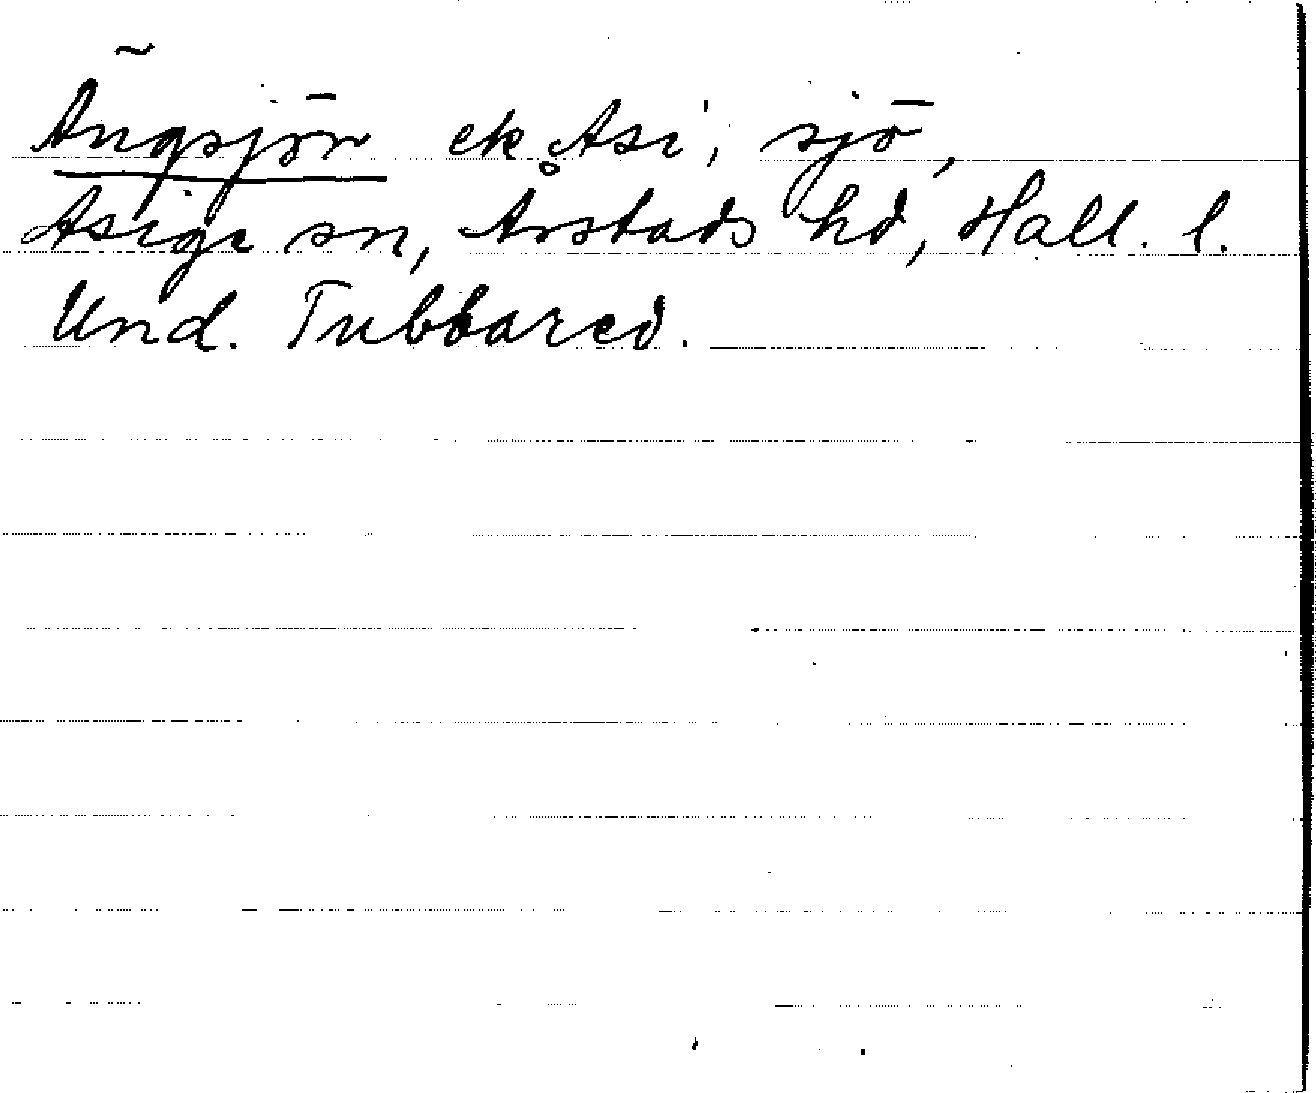 ~
Ängsjön ek Asi, sjö,
Asige sn, Årstads hd, Hall. l.
Und. Tubbared.